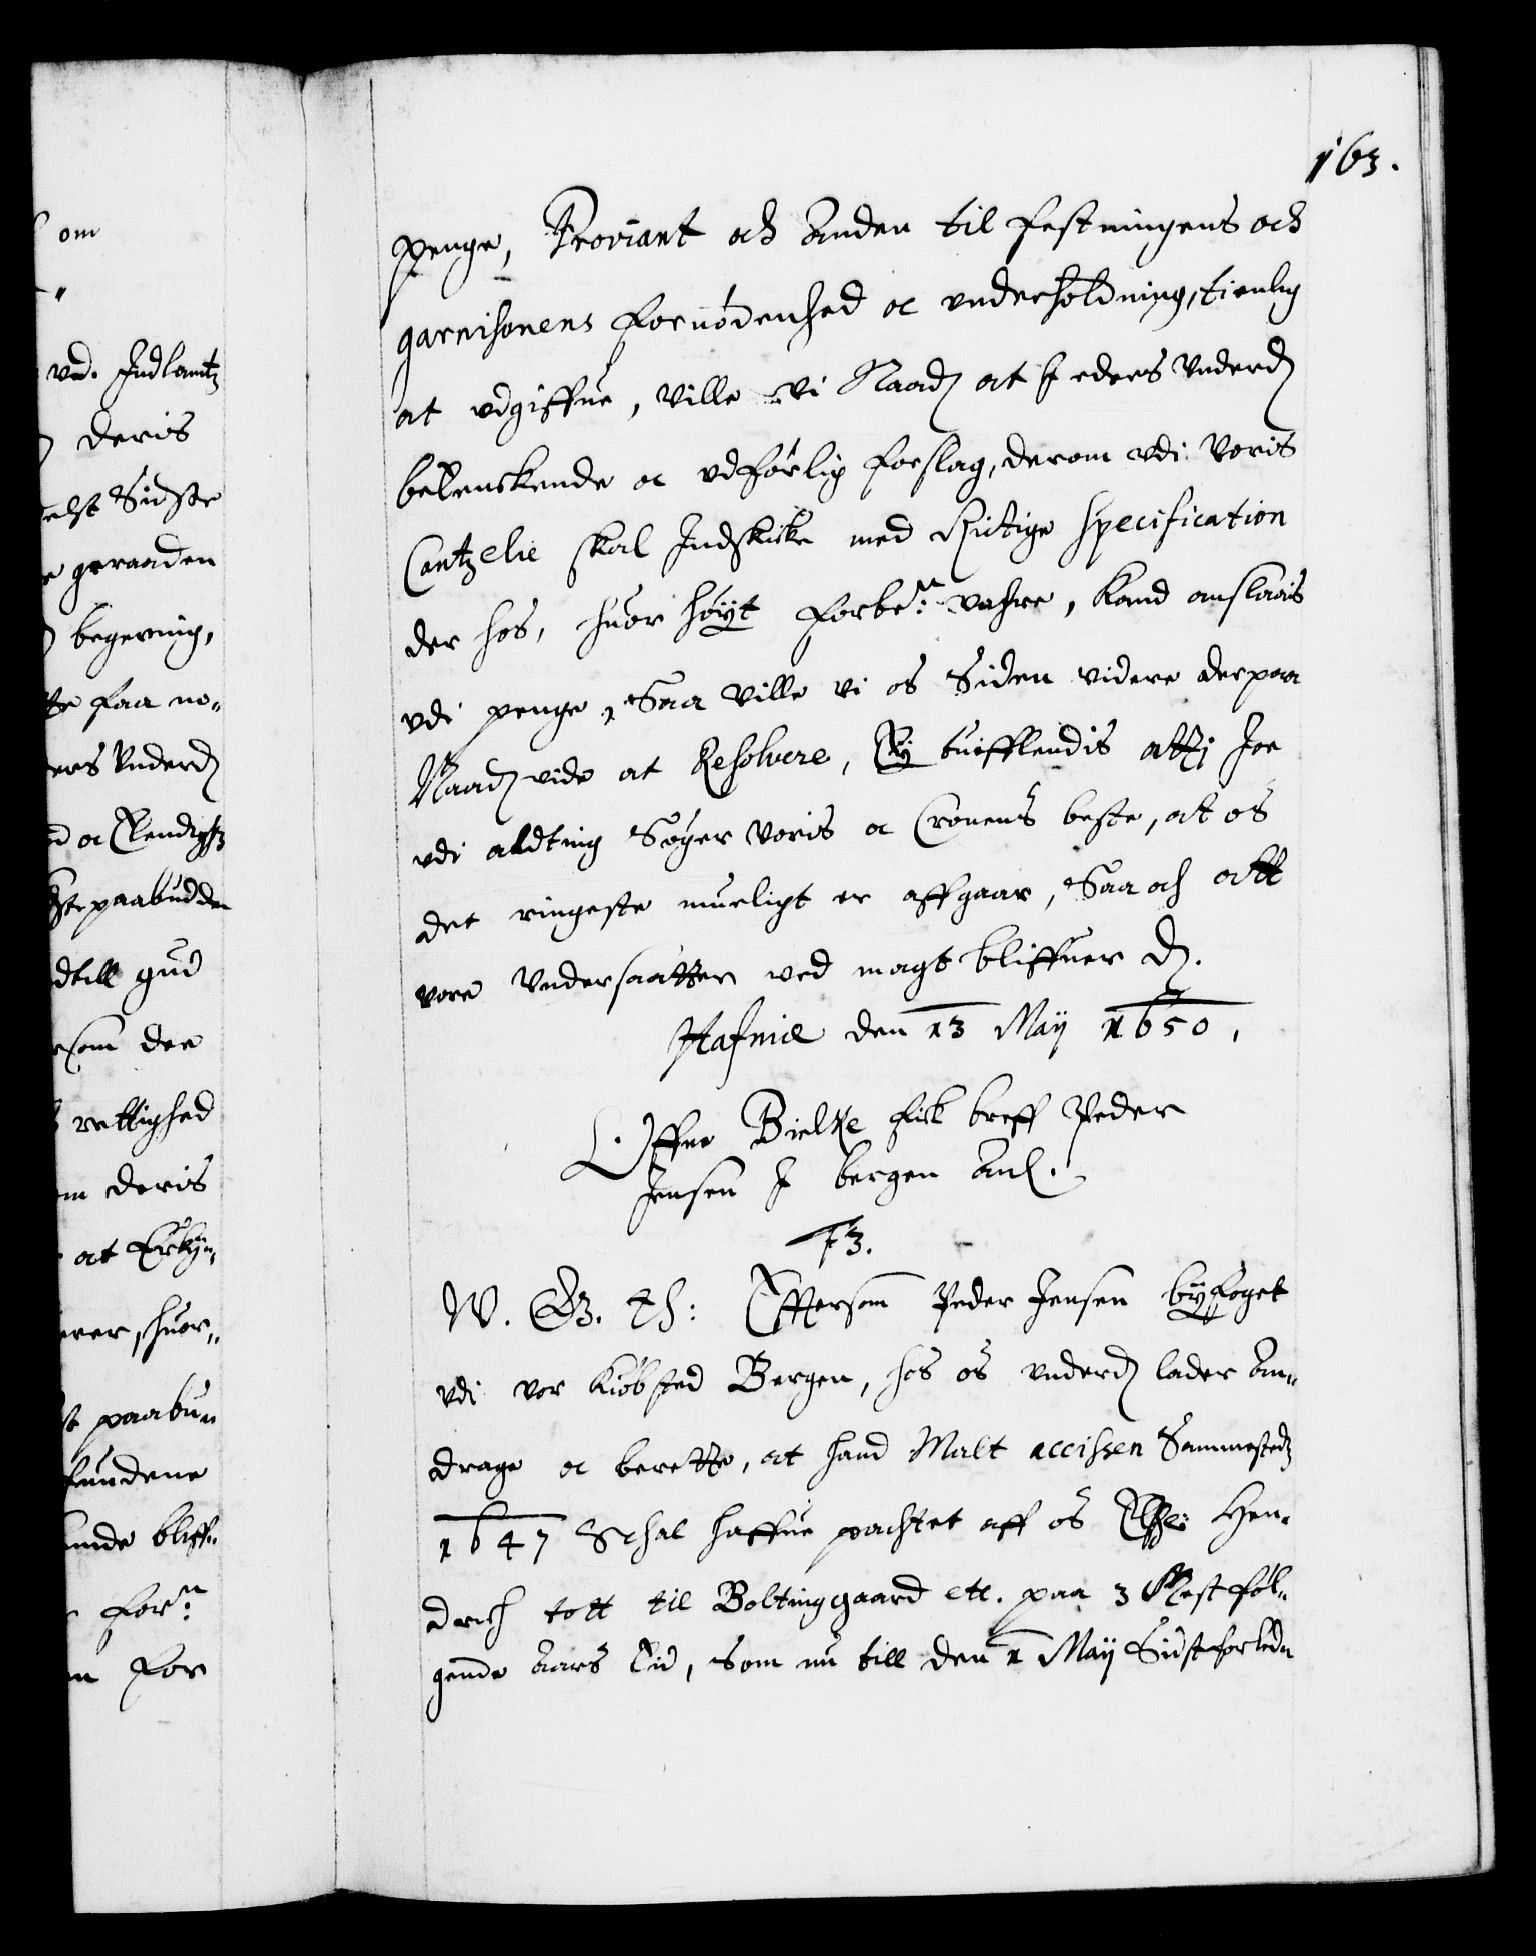 163.
penge, Proviant och Anden til festningens och
garnisonens fornødenhed oc underholdning, tienlig
at udgiffue, Ville Vi Naad at I eders underd
betenckende oc udførlig forslag, derom udi Voris
Cantzelie skal Indskicke med Rictige specification
der hos, huor høyt forbe:te vahre, Kand anslaais
vdi penge, Saa Ville vi os Siden videre derpaa
Naad vide at Resolvere, Ey tuifflendis atti Joe
vdi aldting Søger Voris oc Cronens beste, at os
det ringeste mueligt er affgaar, Saa och att
vore Undersaatter ved magt bliffuer D.
Hafniæ den 13 Maij 1650.
Offue Bielke fick breff Peder
Jensen I bergen Anl.
73.
W. G. Th: Effersom Peder Jensen byfoget
vdi vor Kiøbsted Bergen, hos os underd lader An-
drage oc berette, at hand Malt accissen Sammestedz
1647 Schal haffue pachtet aff os Elske: Hen-
drich tott til Boltinggaard etc. paa 3 Nest føl-
gende Aars Tid, som nu till den 1 Maij Sidstforleden
om
vd. Indlantz
deris
elst Sidste
geraaden
begering,
faa no-
ers Underd
paabudden
dtill gud
som der
rettighed
deris
at
huor-
paabu-
fundene
bliff-
for:n
for